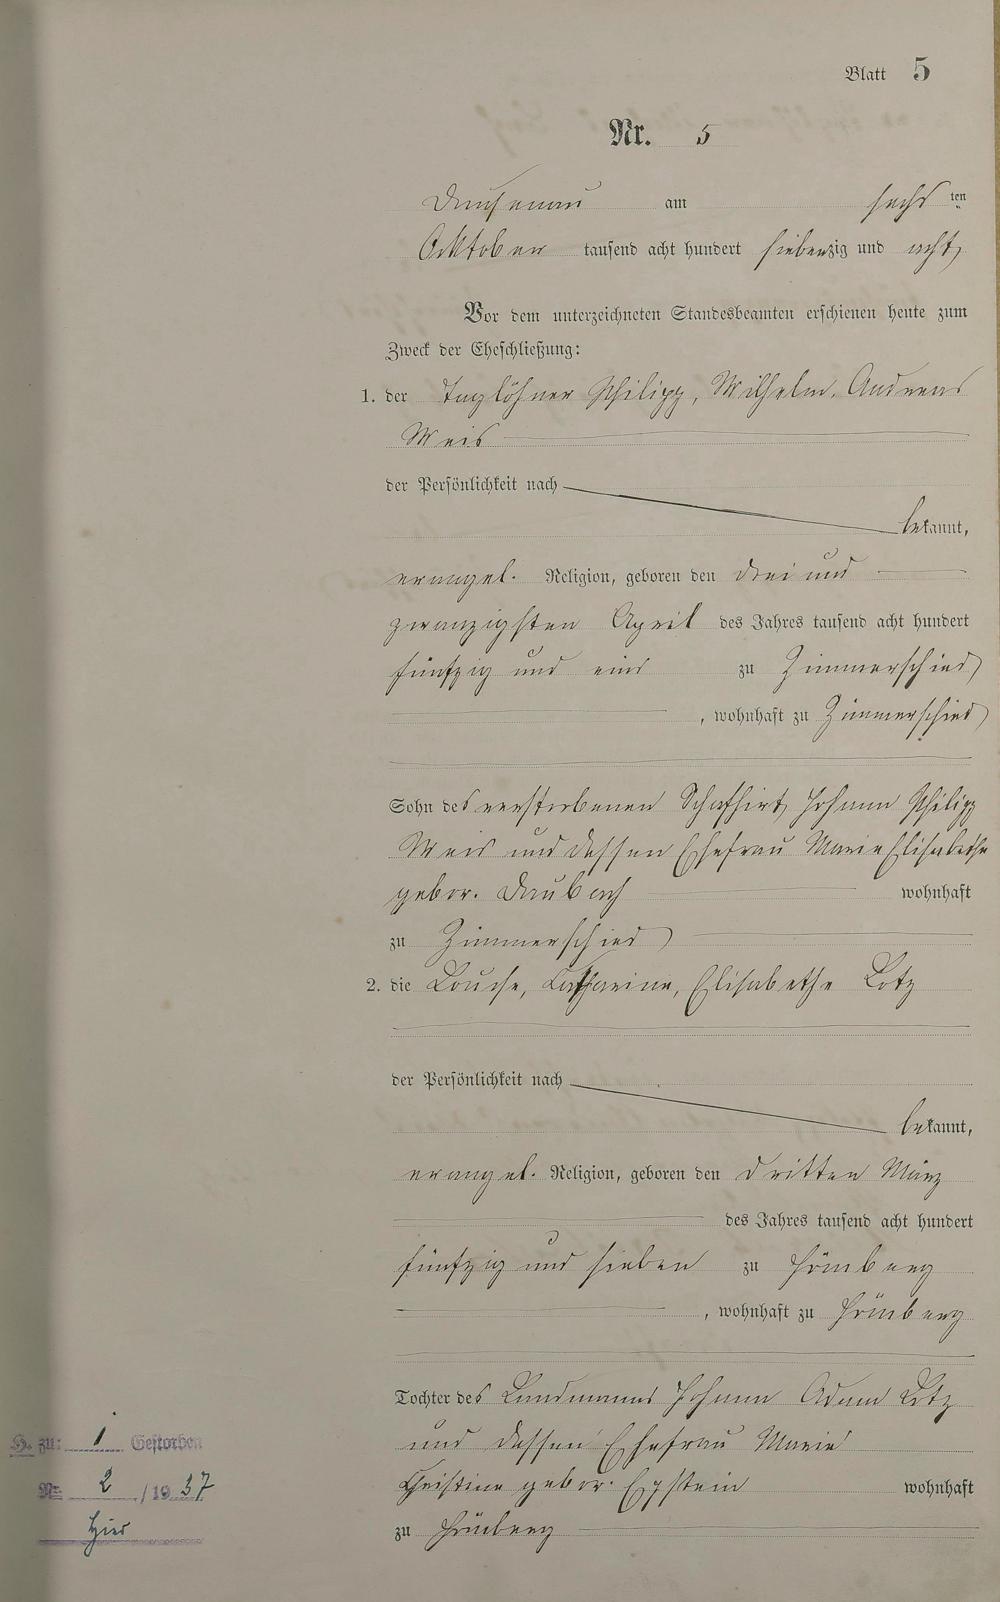 Blatt 5
Nr. 5
Dausenau am sechsten
Oktober tausend acht hundert siebenzig und acht
Vor dem unterzeichneten Standesbeamten erschienen heute zum
Zweck der Eheschließung:
1. der Taglöhner Philipp, Wilhelm, Andreas
Weis
der Persönlichkeit nach
bekannt,
evangel. Religion, geboren den drei und
zwanzigsten April des Jahres tausend acht hundert
fünfzig und eins zu Zimmerschied
, wohnhaft zu Zimmerschied
Sohn des verstorbenen Schafhirt Johann Philipp
Weis und dessen Ehefrau Marie Elisabethe
gebor. Daubach wohnhaft
zu Zimmerschied
2. die Louise, Catharine, Elisabethe Lotz
der Persönlichkeit nach
bekannt,
evangel. Religion, geboren den dritten März
des Jahres tausend acht hundert
fünfzig und sieben zu Hömberg
, wohnhaft zu Hömberg
Tochter des Landmanns Johann Adam Lotz
und dessen Ehefrau Marie
Christine gebor. Epstein wohnhaft
zu Hömberg
H. zu: 1 Gestorben
Nr. 2 /1937
hier